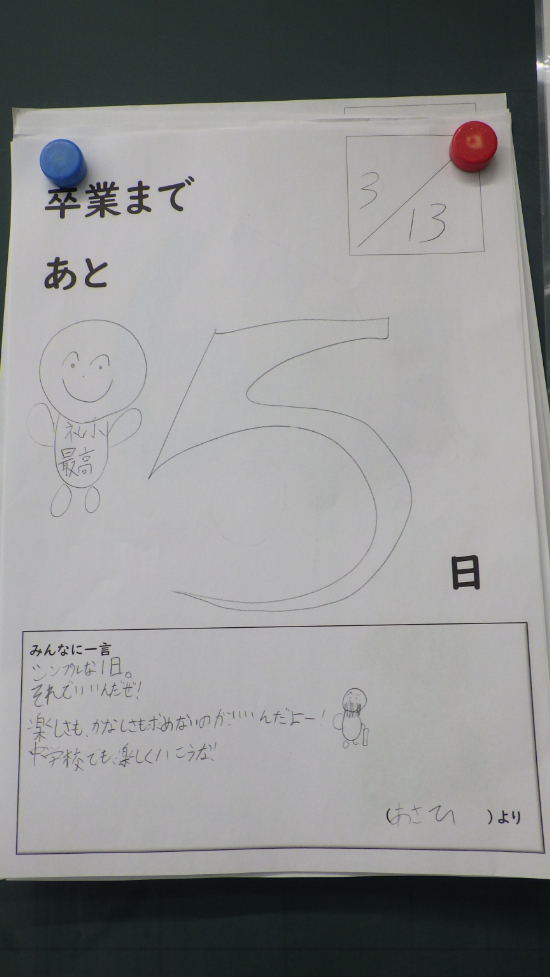 卒業まで
3/13
あと
5
礼小
最高
日
みんなに一言
シンプルな1日。
それでいいんだぜ!
楽しさも、かなしさもホめないのがいいんだよー!
中学校でも、楽しくいこうな!
(あさひ )より